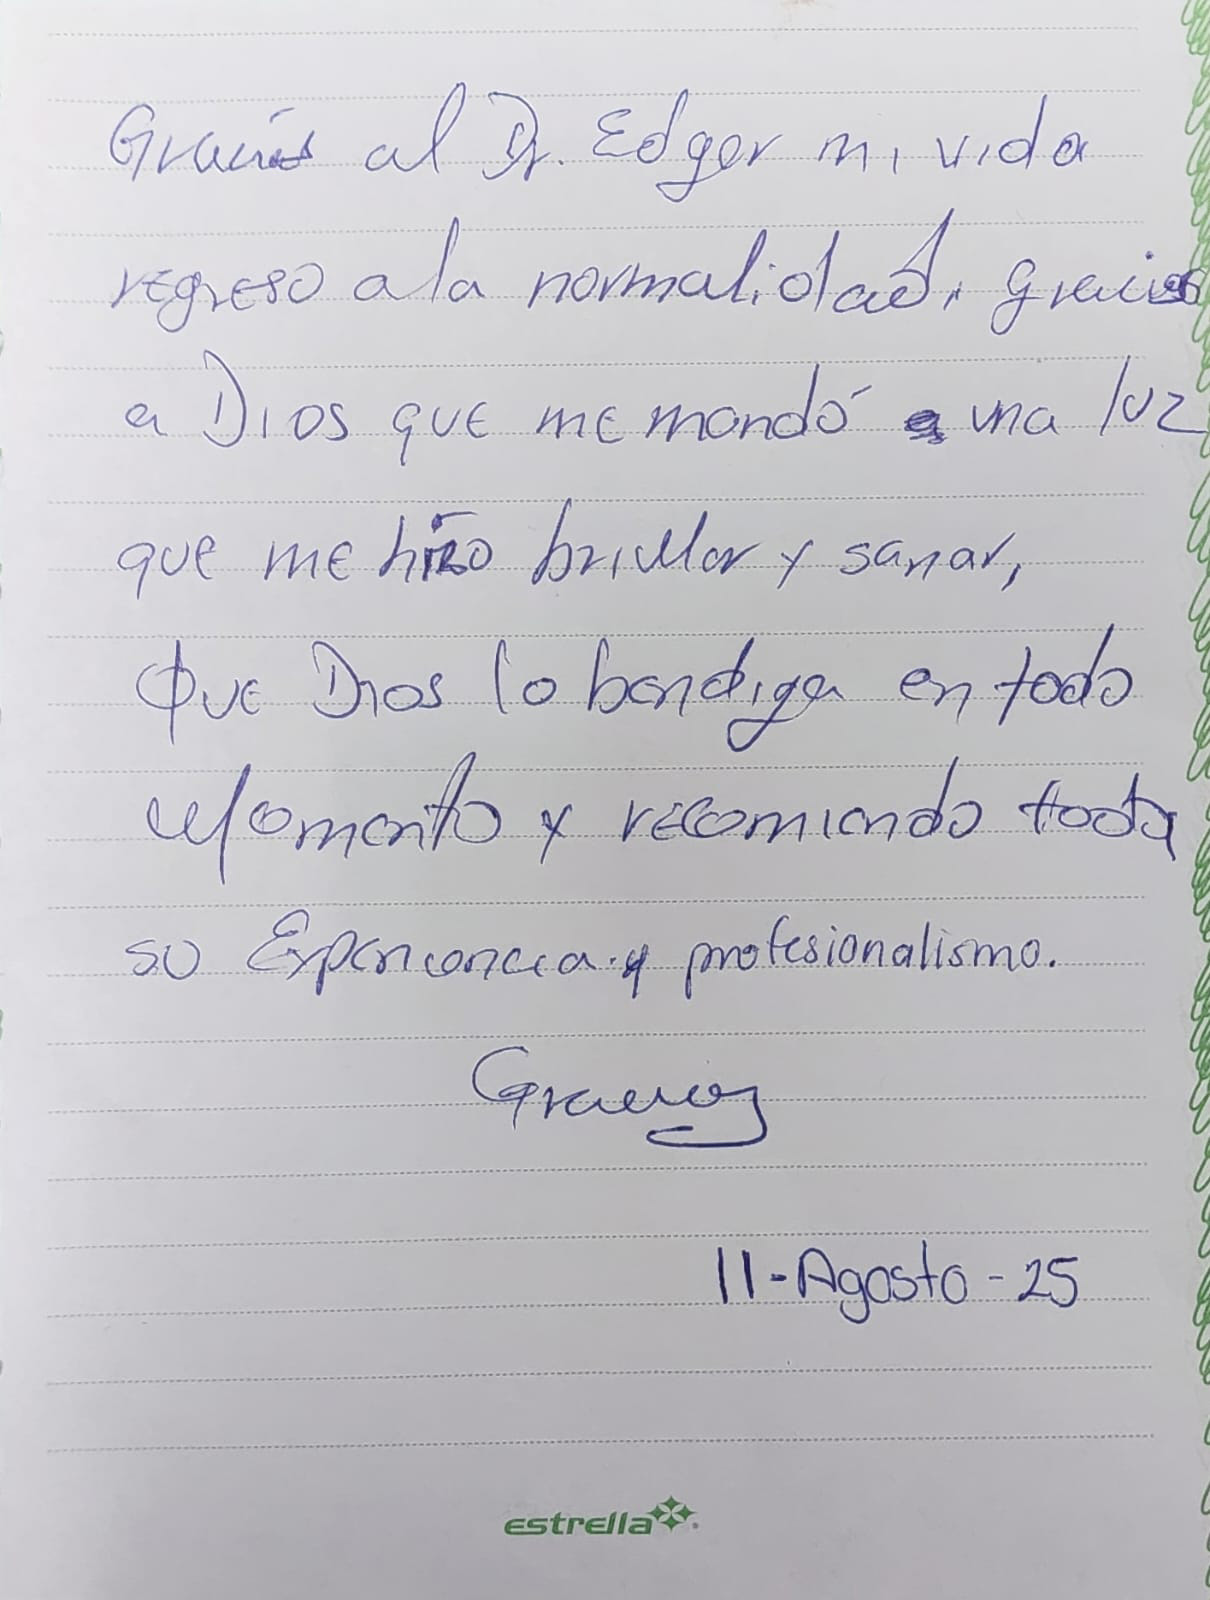 Gracias al Dr. Edgar mi vida
regreso a la normalidad, gracias
a Dios que me mandó una luz
que me hizo brillar y sanar,
Que Dios lo bendiga en todo
Momento y recomiendo toda
su Experiencia y profesionalismo.
Gracias
11-Agosto-25
estrella